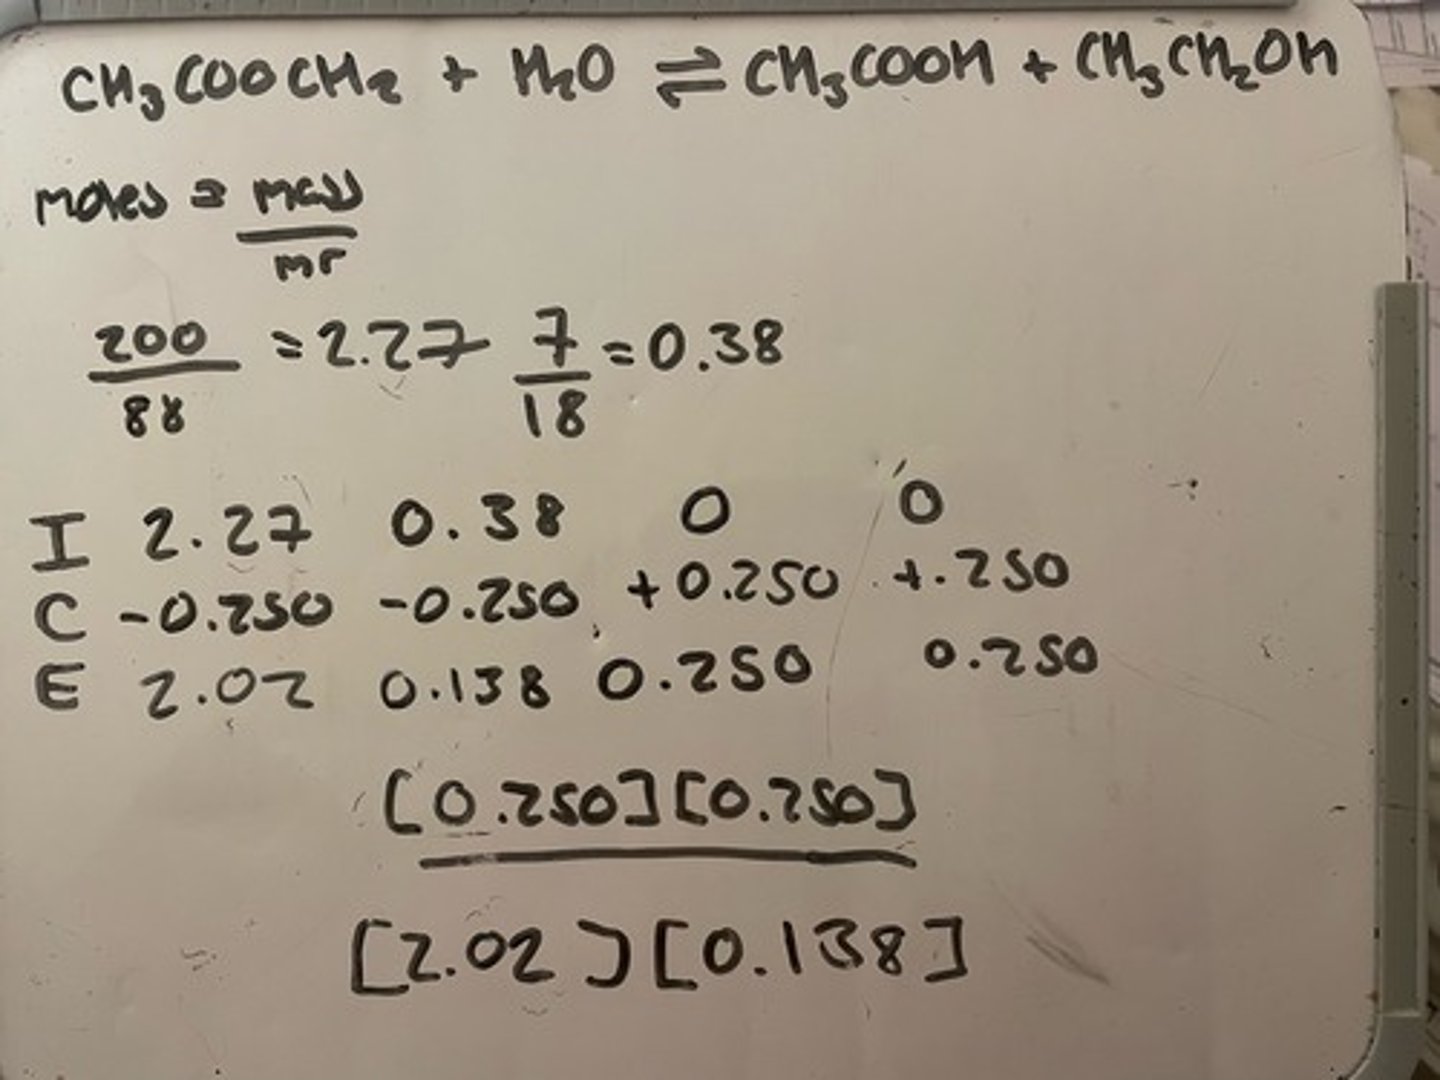 CH₃COOCH₂ + H₂O ⇌ CH₃COOH + CH₃CH₂OH
moles = mass
mr
200 = 2.27 7 = 0.38
88 18
I 2.27 0.38 0 0
C -0.250 -0.250 +0.250 +.250
E 2.02 0.138 0.250 0.250
[0.250][0.250]
[2.02][0.138]